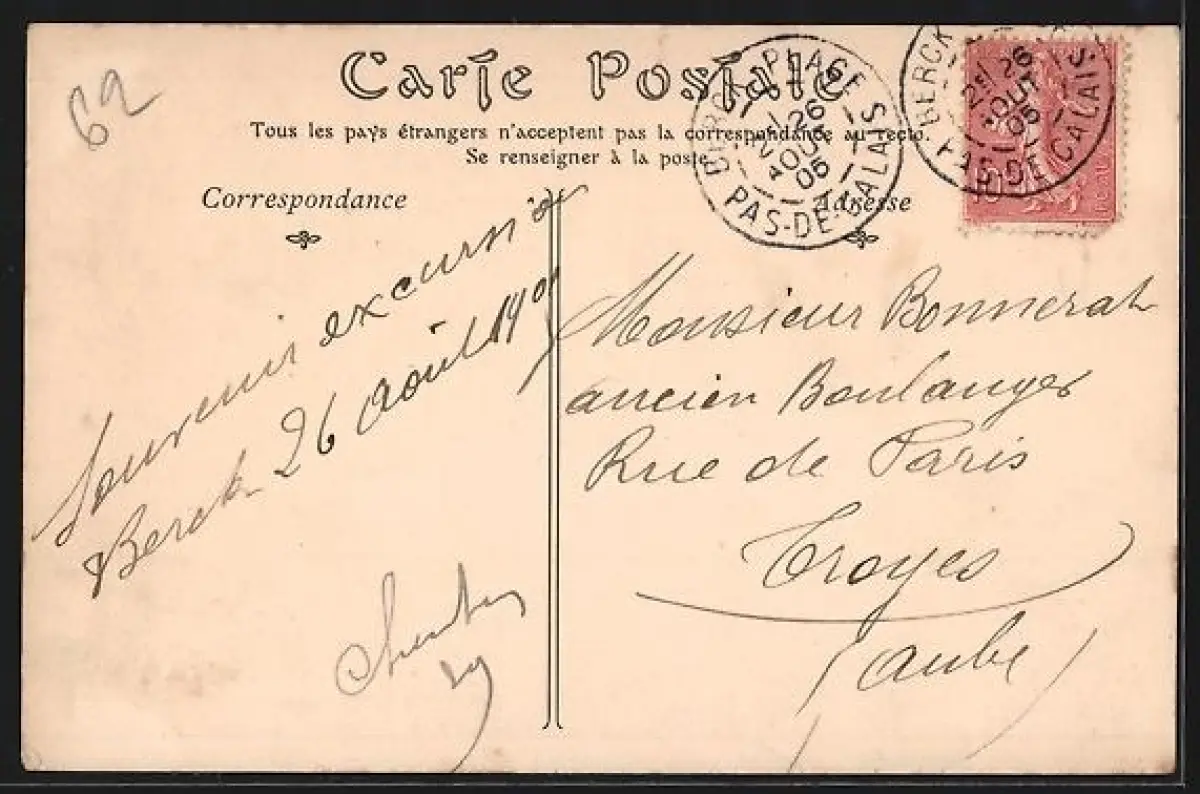 62
Carte Postale
Tous les pays étrangers n'acceptent pas la correspondance au recto.
Se renseigner à la poste.
Correspondance
Adresse
BERCK PLAGE
2E/ 26
AOUT
05
PAS-DE-CALAIS
BERCK
2E/ 26
AOUT
05
PAS-DE-CALAIS
Souvenir excursion
Berck 26 Août
Monsieur Bonnerat
ancien Boulanger
Rue de Paris
Troyes
(aube)